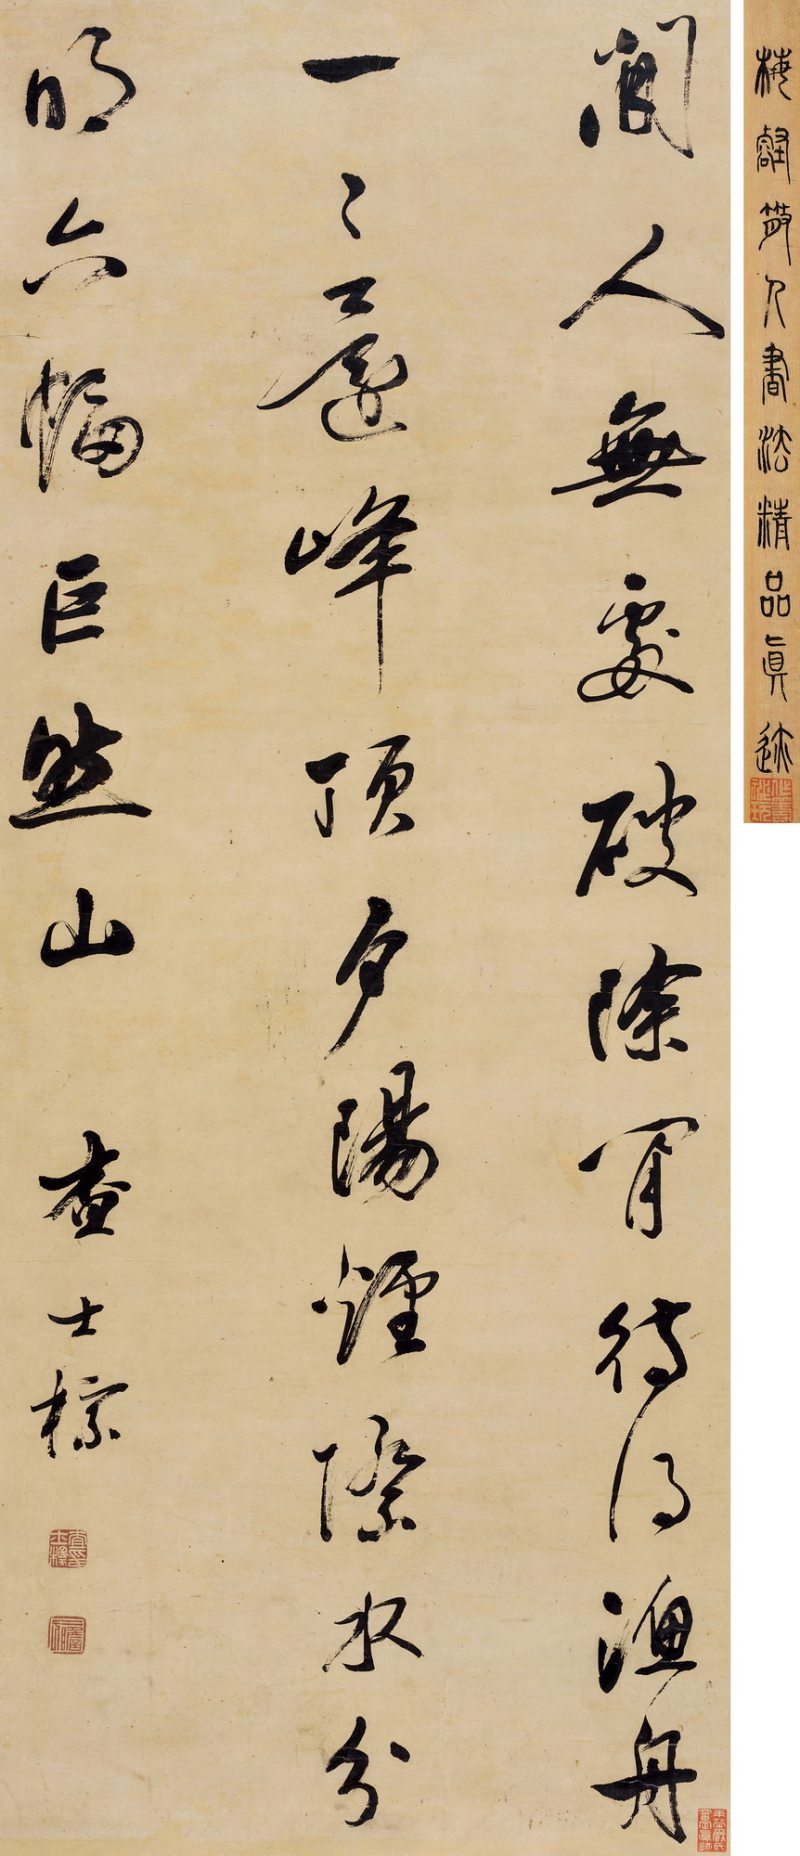 梅壑散人書法精品眞迹
閒人無處破除閒待得漁舟
一〻還峰頂夕陽煙際水分
明六幅巨然山 查士標